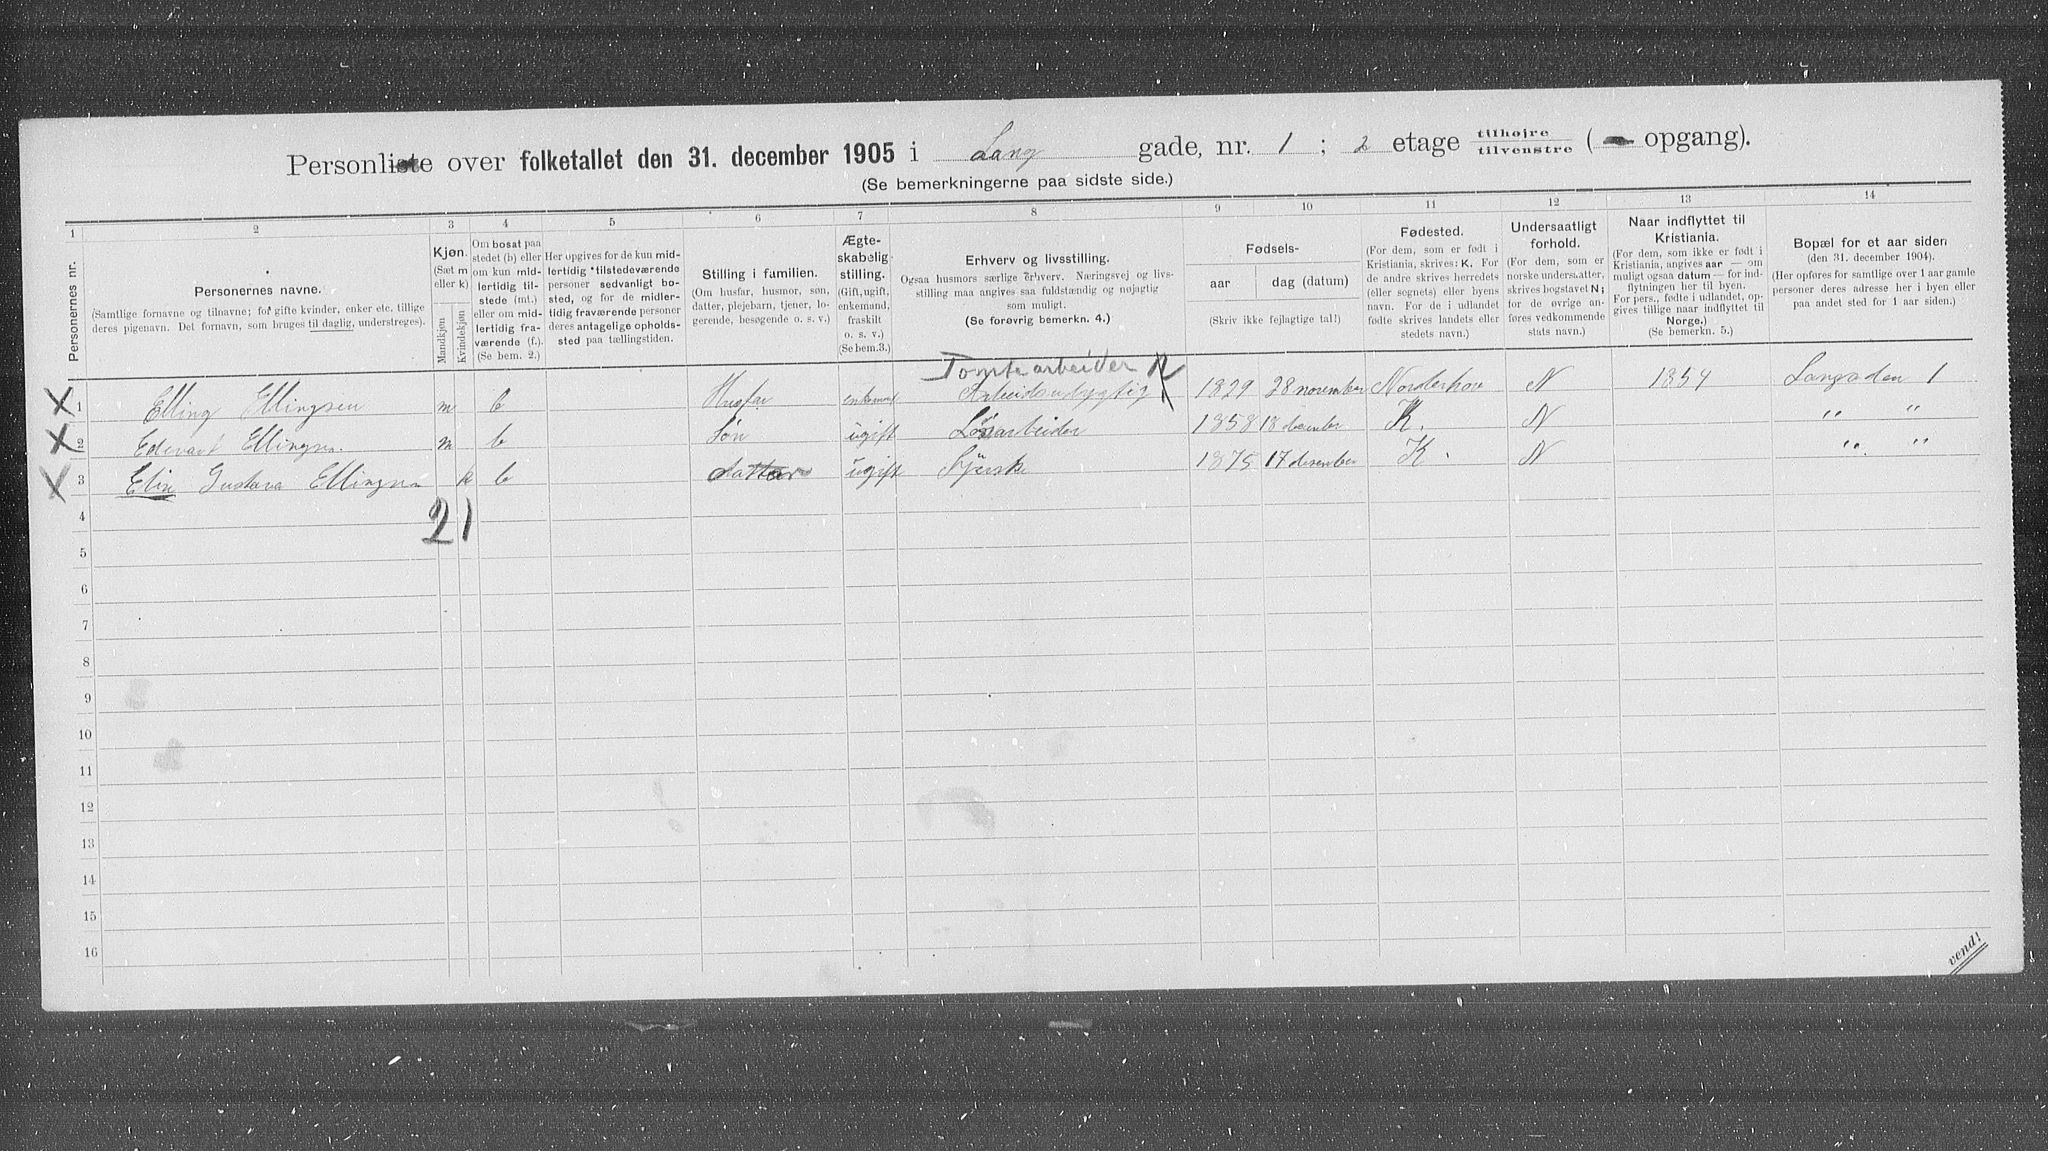 Personliste over folketallet den 31. december 1905 i Lang gade, nr. 1 ; 2 etage tilhøjre / tilvenstre ( opgang).
(Se bemerkningerne paa sidste side.)
1 2 3 4 5 6 7 8 9 10 11 12 13 14
Personernes nr.
Personernes navne.
(Samtlige fornavne og tilnavne; for gifte kvinder, enker etc. tillige
deres pigenavn. Det fornavn, som bruges til daglig, understreges).
Kjøn.
(Sæt m
eller k)
Mandkjøn
Kvindekjøn
Om bosat paa
stedet (b) eller
om kun mid-
lertidig til-
stede (mt.)
eller om mid-
lertidig fra-
værende (f.).
(Se bem. 2.)
Her opgives for de kun mid-
lertidig tilstedeværende
personer sedvanligt bo-
sted, og for de midler-
tidig fraværende personer
deres antagelige opholds-
sted paa tællingstiden.
Stilling i familien.
(Om husfar, husmor, søn,
datter, plejebarn, tjener, lo-
gerende, besøgende o. s. v.)
Ægte-
skabelig
stilling.
(Gift, ugift,
enkemand,
fraskilt
o. s. v.)
(Se bem.3.)
Erhverv og livsstilling.
Ogsaa husmors særlige erhverv. Næringsvej og livs-
stilling maa angives saa fuldstændig og nøjagtig
som muligt.
(Se forøvrig bemerkn. 4.)
Fødsels-
aar dag (datum)
(Skriv ikke fejlagtige tal!)
Fødested.
(For dem, som er født i
Kristiania, skrives: K. For
de andre skrives herredets
(eller sognets) eller byens
navn. For de i udlandet
fødte skrives landets eller
stedets navn.)
Undersaatligt
forhold.
(For dem, som er
norske undersaatter,
skrives bogstavet N;
for de øvrige an-
føres vedkommende
stats navn.)
Naar indflyttet til
Kristiania.
(For dem, som ikke er født i
Kristiania, angives aar — om
muligt ogsaa datum — for ind-
flytningen her til byen.
For pers., fødte i udlandet, op-
gives tillige naar indflyttet til
Norge.)
(Se bemerkn. 5.)
Bopæl for et aar siden
(den 31. december 1904).
(Her opføres for samtlige over 1 aar gamle
personer deres adresse her i byen eller
paa andet sted for 1 aar siden.)
Tomtearbeider
X 1 Elling Ellingsen m b Husfar enkemand Arbeidsudygtig 1829 28 november Norderhove N 1854 Langaden 1
X 2 Edevart Ellingsen. m b Søn ugift Løsarbeider 1858 18 december K. N " "
X 3 Elise Gustava Ellingsen k b datter ugift Syerske 1875 17 desember K. N " "
2 1
4
5
6
7
8
9
10
11
12
13
14
15
16
vend!